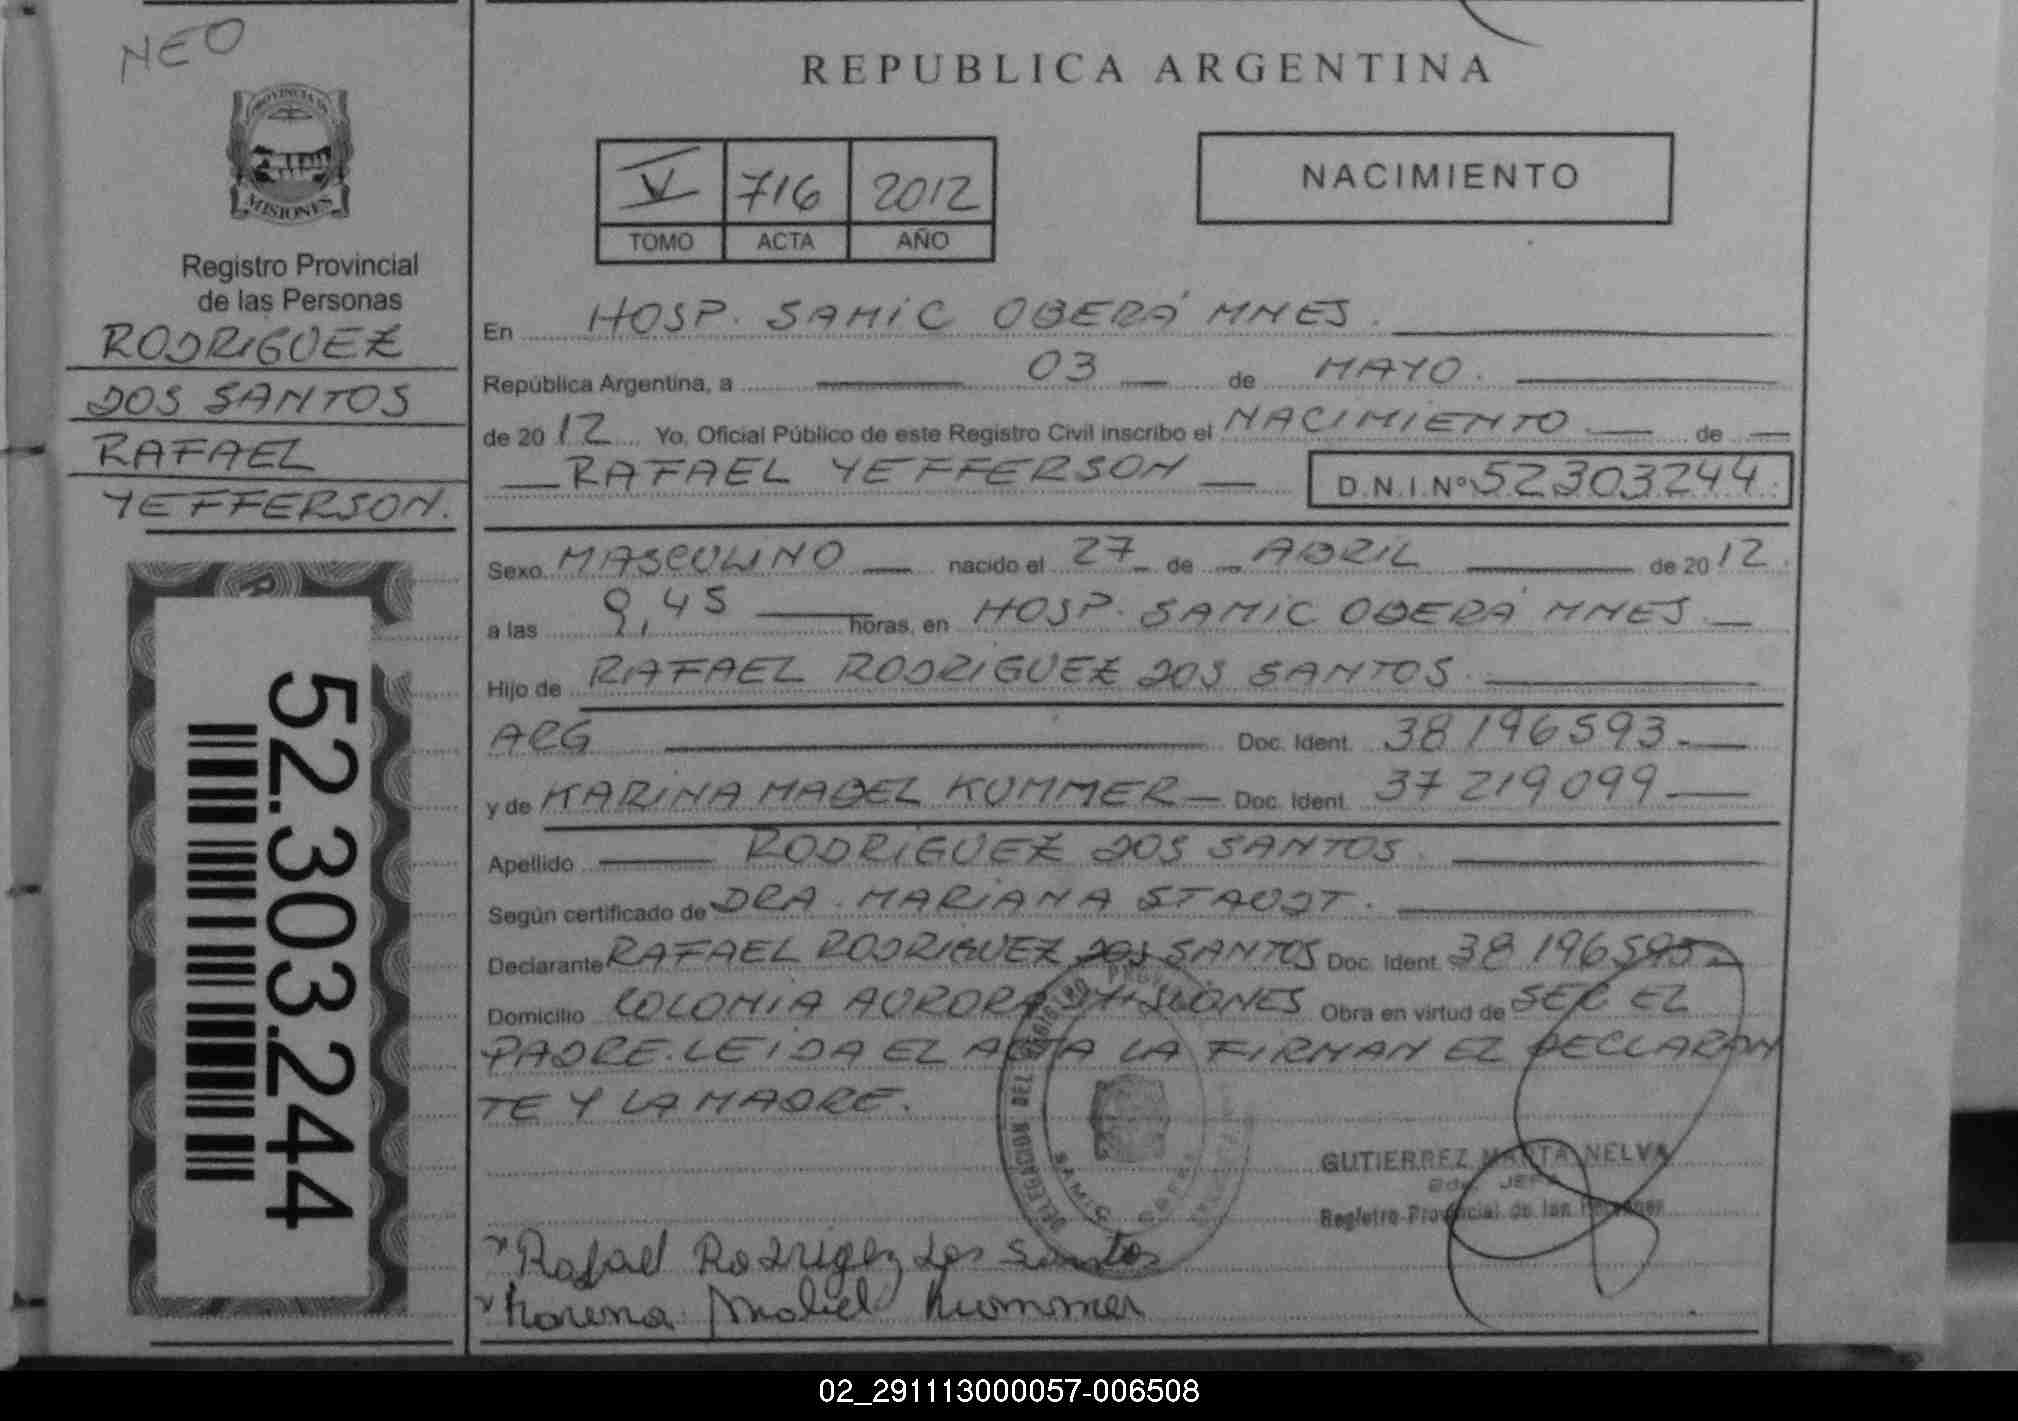 NEO
PROVINCIA DE
MISIONES
Registro Provincial
de las Personas
RODRIGUEZ
DOS SANTOS
RAFAEL
YEFFERSON.
52.303.244
REPUBLICA ARGENTINA
V 716 2012
TOMO ACTA AÑO
NACIMIENTO
En HOSP. SAMIC OBERÁ MNES.
República Argentina, a 03 de MAYO.
de 2012 Yo, Oficial Público de este Registro Civil inscribo el NACIMIENTO de
RAFAEL YEFFERSON D.N.I.Nº 52303244
Sexo MASCULINO nacido el 27 de ABRIL de 2012
a las 9,45 horas, en HOSP. SAMIC OBERÁ MNES
Hijo de RAFAEL RODRIGUEZ DOS SANTOS.
ARG Doc. Ident. 38196593
y de KARINA MABEL KUMMER Doc. Ident. 37219099
Apellido RODRIGUEZ DOS SANTOS
Según certificado de DRA. MARIANA STAUDT.
Declarante RAFAEL RODRIGUEZ DOS SANTOS Doc. Ident. 38196593
Domicilio COLONIA AURORA MISIONES Obra en virtud de SER EL
PADRE. LEIDA EL ACTA LA FIRMAN EL DECLARAN
TE Y LA MADRE.
DELEGACION DEL REGISTRO
SAMIC OBERA
GUTIERREZ MARTA NELVA
JEFE
Registro Provincial de las Personas
Rafael Rodrigez dos Santos
Karena Mabel Kummer
02_291113000057-006508